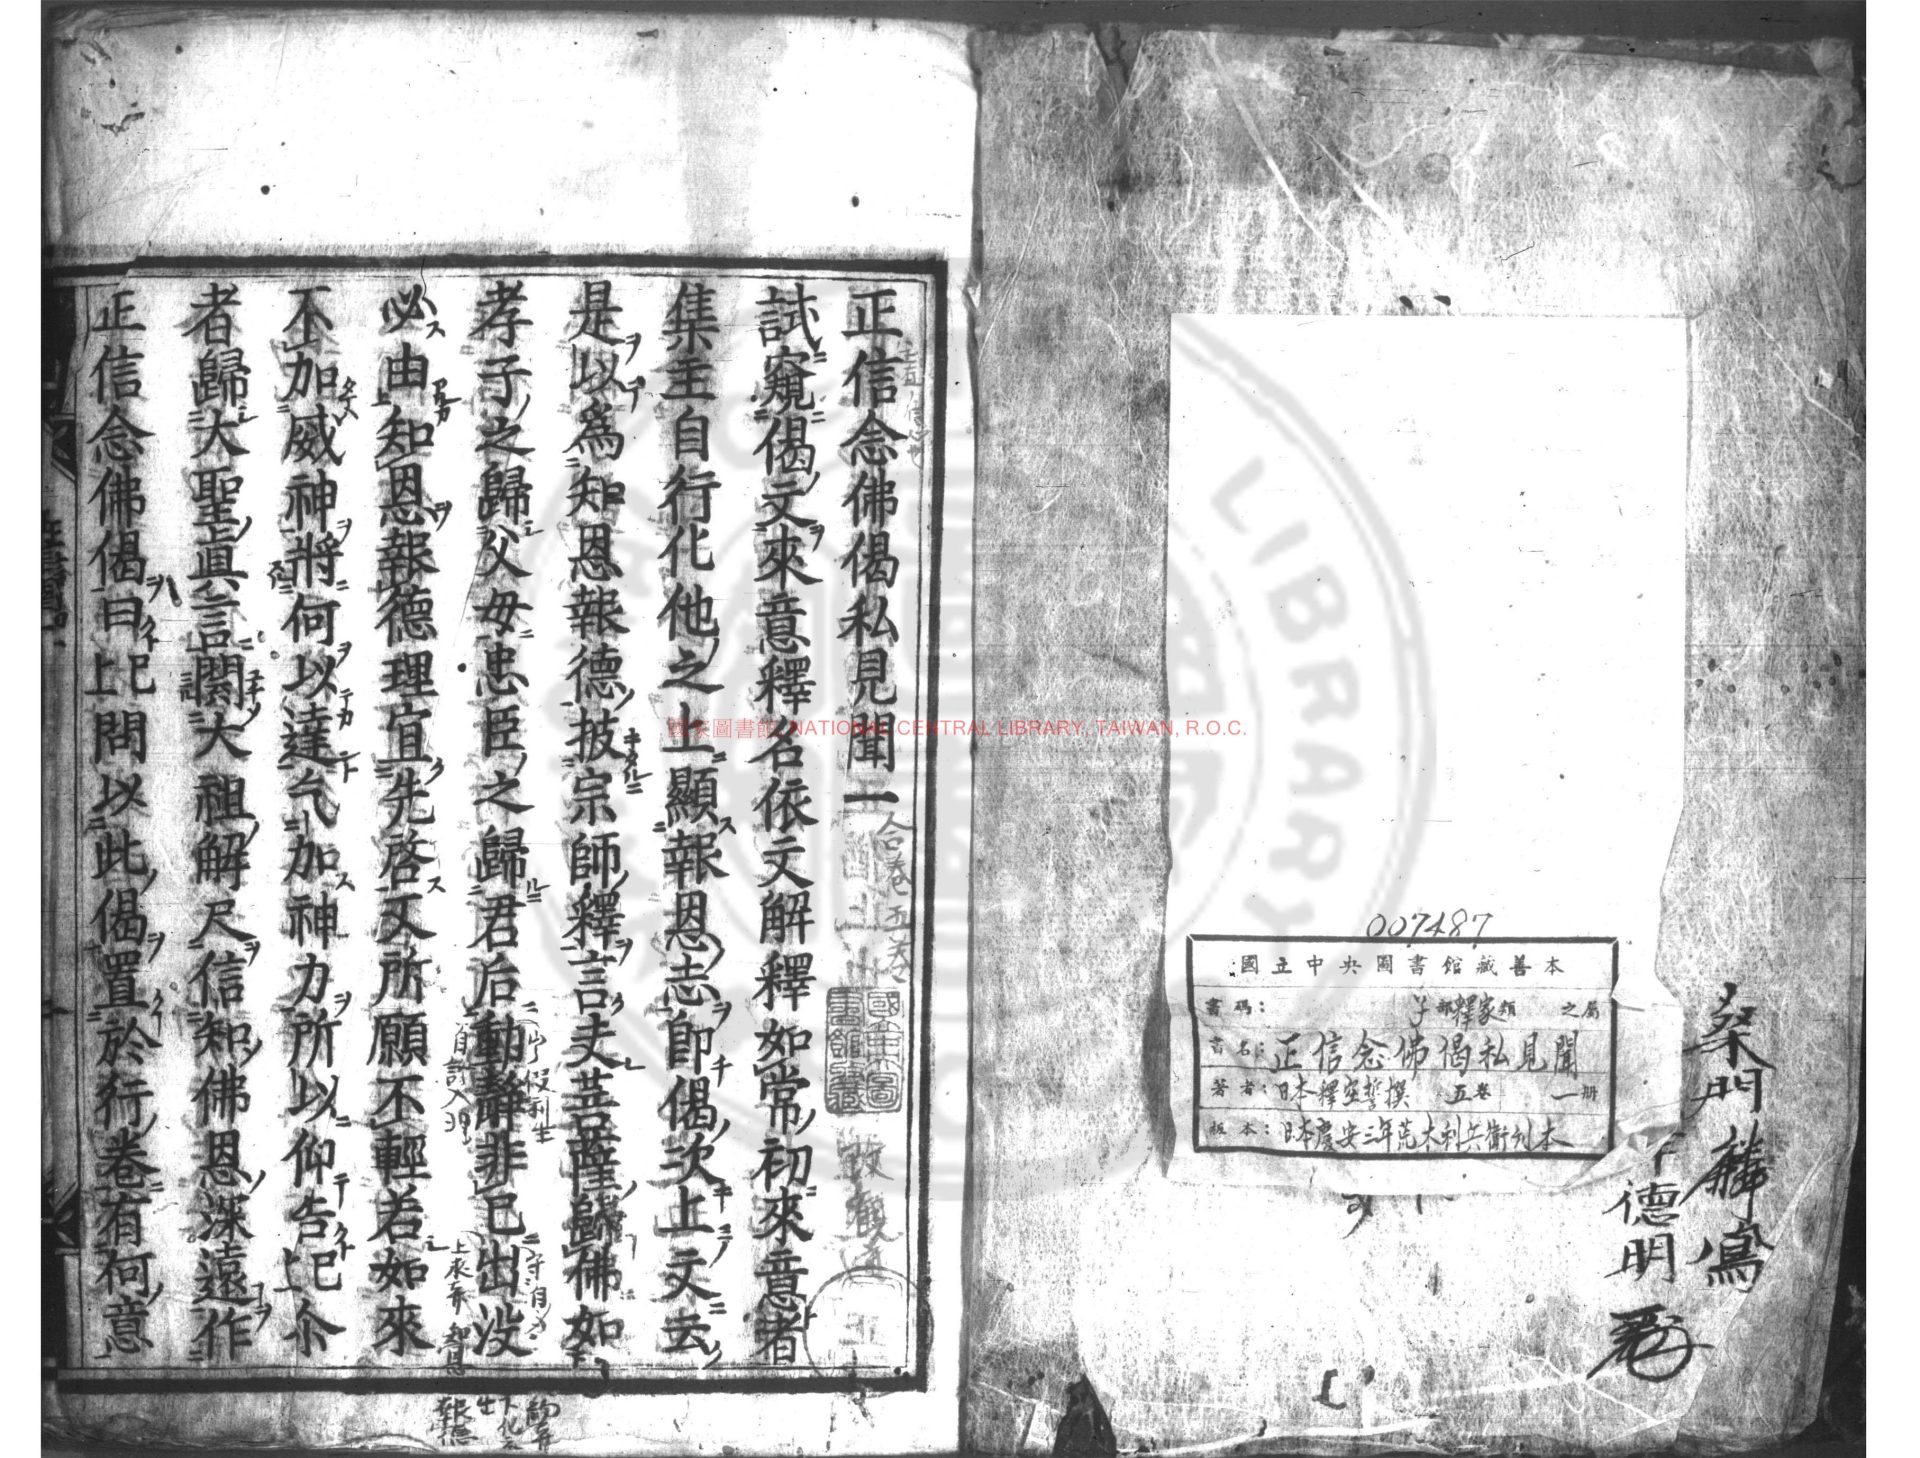 桑門麟鳶
德明
007487
國立中央圖書館藏善本
書碼： 子部釋家類 之屬
書名：正信念佛偈私見聞
著者：日本釋空誓撰 五卷 一册
板本：日本慶安三年荒木利兵衛刊本
正信念佛偈私見聞一
合卷五卷
試窺偈文來意釋名依文解釋如常初來意者
集主自行化他之上顯報恩志即偈次上文云
是以爲知恩報德披宗師釋言夫菩薩歸佛如
孝子之歸父母忠臣之歸君后動靜非己出没
必由知恩報德理宜先啓又所願不輕若如來
不加威神將何以達乞加神力所以仰告上已尒
者歸大聖眞言閱大祖解尺信知佛恩深遠作
正信念佛偈曰上已問以此偈置於行卷有何意
國家圖書館, NATIONAL CENTRAL LIBRARY, TAIWAN, R.O.C.
LIBRARY